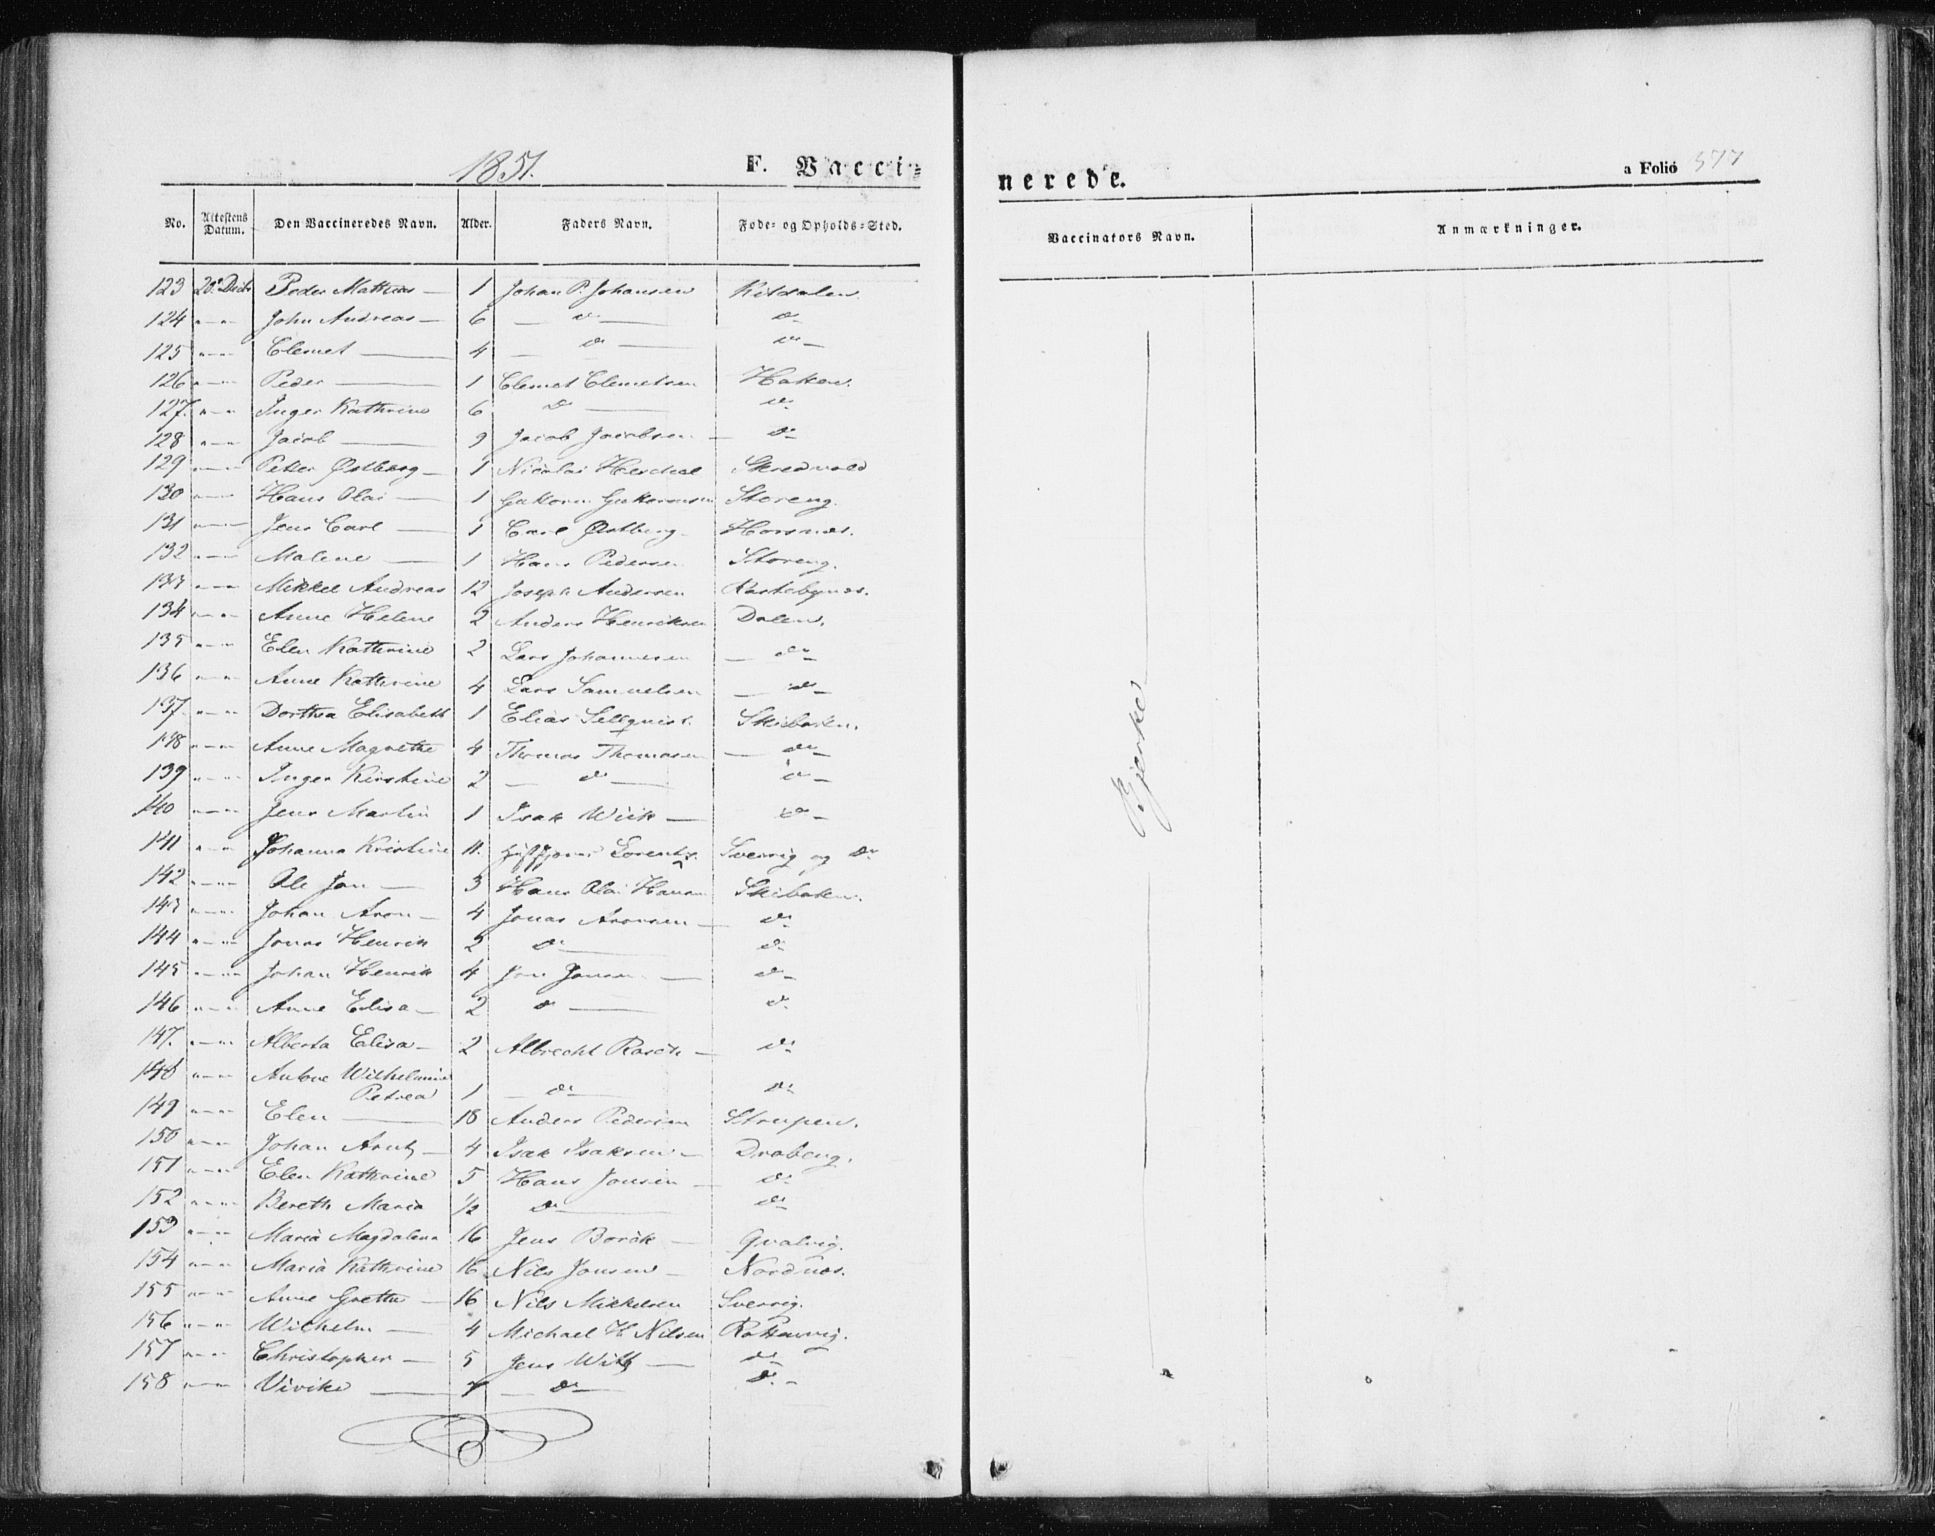 1851.
F. Vacci-
nerede.
a Folio 577
No. Attestens Datum. Den Vaccineredes Navn. Alder. Faders Navn. Føde- og Opholds-Sted.
Vaccinators Navn. Anmærkninger.
123 20. Decbr Peder Mathias — 1 Johan P. Johansen Kitdalen
124 " — " John Andreas — 6 — do — do
125 " — " Clemet — 4 — do — do —
126 " — " Peder — 1 Clemet Clemetsen Hoken.
127. " — " Inger Kathrine 6 Do — do
128 " — " Jacob — 9 Jacob Jacobsen — do
129 " — " Peter Østberg — 1 Nicolai Hescheel
130 " — " Hans Olai — 1 Storeng.
131 " — " Jens Carl — 1 Carl Østberg Horsnæs.
132 " — " Malene — 1 Hans Pedersen Storeng.
133 " — " Mikkel Andreas 12 Joseph Andersen Rastebynæs.
134 " — " Anne Helene 2 Anders Henriksen Dalen.
135 " — " Elen Kathrine 2 Lars Johannesen — do
136 " — " Anne Kathrine 4 Lars Samuelsen — do —
137. " — " Dorthea Elisabeth 1 Elias Sellquist. Skiboten.
138 " — " Anne Magrethe 4 Thomas Thomasen — do —
139 " — " Inger Kirstine 2 — do — do —
140 " — " Jens Martin 1 Isak Wiik — do —
141 " — " Johanna Kristine 11. Lorents. Svervig og Do
142 " — " Ole Jon — 3 Hans Olai Hansen Skiboten.
143 " — " Johan Aron — 4 Jonas Aronsen — do
144 " — " Jonas Henrik 2 Do — do
145 " — " Johan Henrik 4 Jon Jonsen — do —
146 " — " Anne Elisa — 2 Do — do
147. " — " Alberta Elisa — 2 Albrecht Rasch — do
148 " — " Antone Wilhelmine
Petrea 1 — do — do
149 " — " Elen — 18 Anders Pedersen Strupen.
150 " — " Johan Arntz — 4 Isak Isaksen — Drabeng.
151 " — " Elen Kathrine 5 Hans Jonsen — do
152 " — " Bereth Maria 1/2 Do — do
153 " — " Maria Magdalena 16 Jens Borck — Qvalvig.
154 " — " Maria Kathrine 16 Nils Jonsen — Nordnæs.
155 " — " Anne Grethe — 16 Nils Mikkelsen Svervig.
156 " — " Wilhelm — 4 Michael H Nilsen Rottenvig.
157 " — " Christopher — 5 Jens Witz — do
158 " — " Vivike — 7 — Do — do —
Bjerke